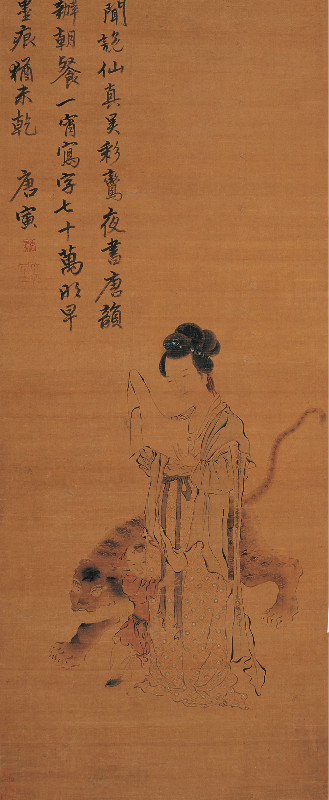 聞說仙真吴彩鸞夜書唐韻
辦朝餐一宵寫字七十萬明早
墨痕猶未乾
唐寅